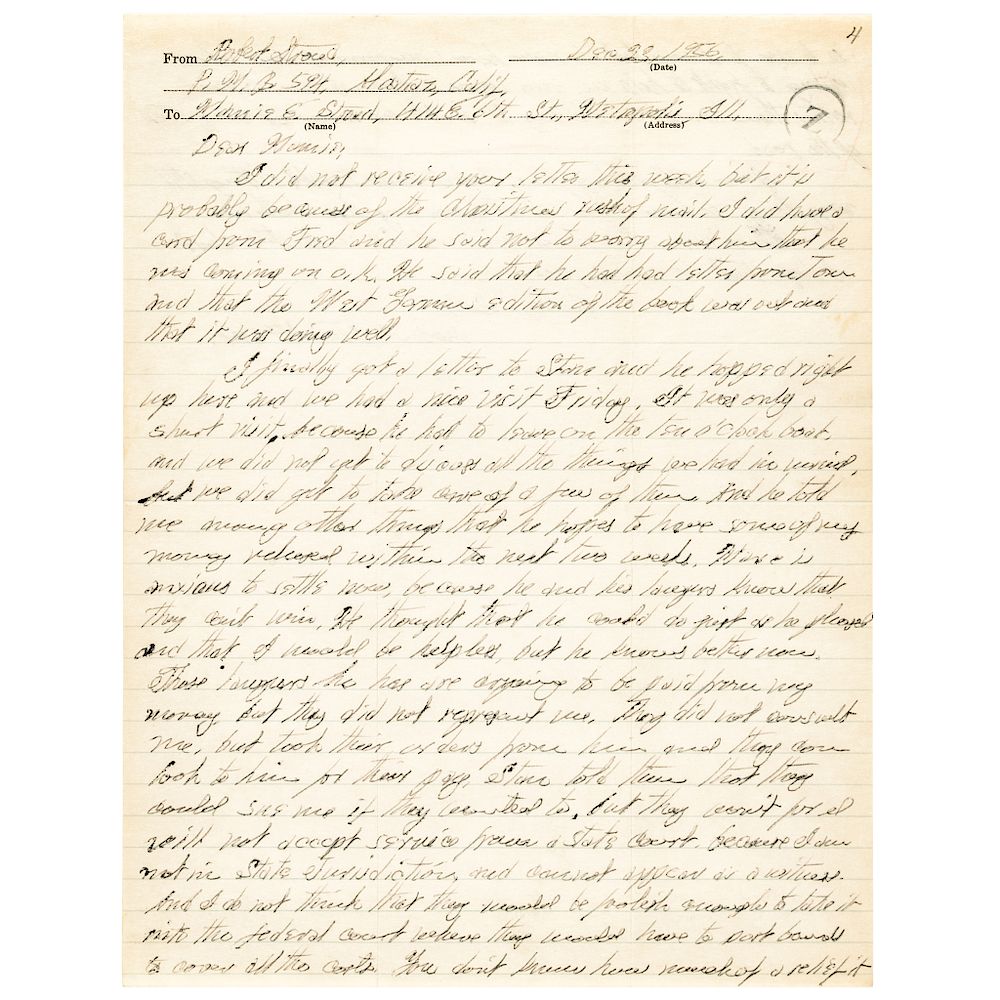 4
From Robert Stroud, Dec 23, 1956
(Date)
P.M.B 594, Alcatraz, Calif,
To Mamie E. Stroud, 414 E. 6th St., Metropolis Ill.
(Name) (Address)
7
Dear Mamie,
I did not receive your letter this week, but it is
probably because of the Christmas rush of mail. I did have a
card from Fred and he said not to worry about him that he
was coming on o.k. He said that he had had letter from Tom
and that the West German edition of the book was out and
that it was doing well.
I finally got a letter to Stan and he hopped right
up here and we had a nice visit Friday. It was only a
short visit, because he had to leave on the ten o'clock boat,
and we did not get to discuss all the things we had in mind,
but we did get to take care of a few of them. And he told
me among other things that he hopes to have some of my
money released within the next two weeks. is
anxious to settle now, because he and his lawyers know that
they can't win. He thought that he could do just as he pleased
and that I would be helpless, but he knows better now.
Those lawyers he has are to be paid from my
money but they did not represent me. They did not consult
me, but took their orders from him and they can
look to him for their pay. Stan told them that they
could sue me if they wanted to, but they won't for I
will not accept service from a State court, because I am
not in State jurisdiction, and cannot appear as a witness.
And I do not think that they would be foolish enough to take it
into the federal court where they would have to post bonds
to cover all the costs. You don't know how much of a relief it